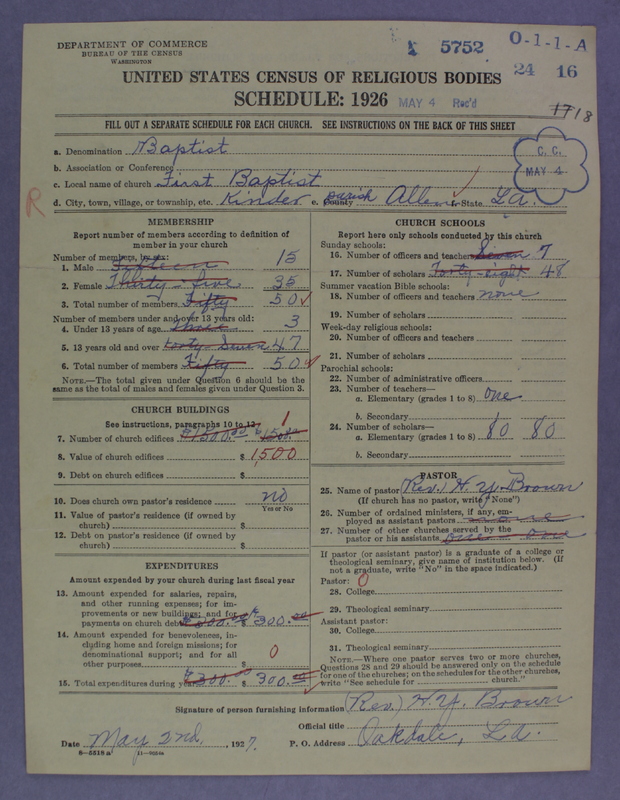 DEPARTMENT OF COMMERCE
BUREAU OF THE CENSUS
WASHINGTON
5752
O-1-1-A
24 16
UNITED STATES CENSUS OF RELIGIOUS BODIES
SCHEDULE: 1926 MAY 4 Rec'd
17 18
FILL OUT A SEPARATE SCHEDULE FOR EACH CHURCH. SEE INSTRUCTIONS ON THE BACK OF THIS SHEET
C. C.
MAY 4
a. Denomination Baptist
b. Association or Conference
c. Local name of church First Baptist
R
d. City, town, village, or township, etc. Kinder e. County parish Allen f. State La.
MEMBERSHIP
Report number of members according to definition of member in your church
Number of members, by sex:
1. Male Fifteen 15
2. Female Thirty-five 35
3. Total number of members Fifty 50
Number of members under and over 13 years old:
4. Under 13 years of age Three 3
5. 13 years old and over Forty Seven 47
6. Total number of members Fifty 50
NOTE.—The total given under Question 6 should be the same as the total of males and females given under Question 3.
CHURCH BUILDINGS
See instructions, paragraphs 10 to 12
7. Number of church edifices $1500.00 $1500.00 1
8. Value of church edifices $ 1500
9. Debt on church edifices $
10. Does church own pastor's residence no
Yes or No
11. Value of pastor's residence (if owned by church) $
12. Debt on pastor's residence (if owned by church) $
EXPENDITURES
Amount expended by your church during last fiscal year
13. Amount expended for salaries, repairs, and other running expenses; for improvements or new buildings; and for payments on church debt $300.00 $300.00
14. Amount expended for benevolences, including home and foreign missions; for denominational support; and for all other purposes $ 0
15. Total expenditures during year $300.00 $300.00
CHURCH SCHOOLS
Report here only schools conducted by this church
Sunday schools:
16. Number of officers and teachers Seven 7
17. Number of scholars Forty-eight 48
Summer vacation Bible schools:
18. Number of officers and teachers none
19. Number of scholars
Week-day religious schools:
20. Number of officers and teachers
21. Number of scholars
Parochial schools:
22. Number of administrative officers
23. Number of teachers—
a. Elementary (grades 1 to 8) one
b. Secondary
24. Number of scholars—
a. Elementary (grades 1 to 8) 80 80
b. Secondary
PASTOR
25. Name of pastor (Rev.) H. Y. Brown
(If church has no pastor, write "None")
26. Number of ordained ministers, if any, employed as assistant pastors none
27. Number of other churches served by the pastor or his assistants one - one
If pastor (or assistant pastor) is a graduate of a college or theological seminary, give name of institution below. (If not a graduate, write "No" in the space indicated.)
Pastor: 0
28. College
29. Theological seminary
Assistant pastor:
30. College
31. Theological seminary
NOTE.—Where one pastor serves two or more churches, Questions 28 and 29 should be answered only on the schedule for one of the churches; on the schedules for the other churches, write "See schedule for church."
Signature of person furnishing information (Rev.) H. Y. Brown
Official title
Date May 2nd, 1927. P. O. Address Oakdale, La.
8-5518a